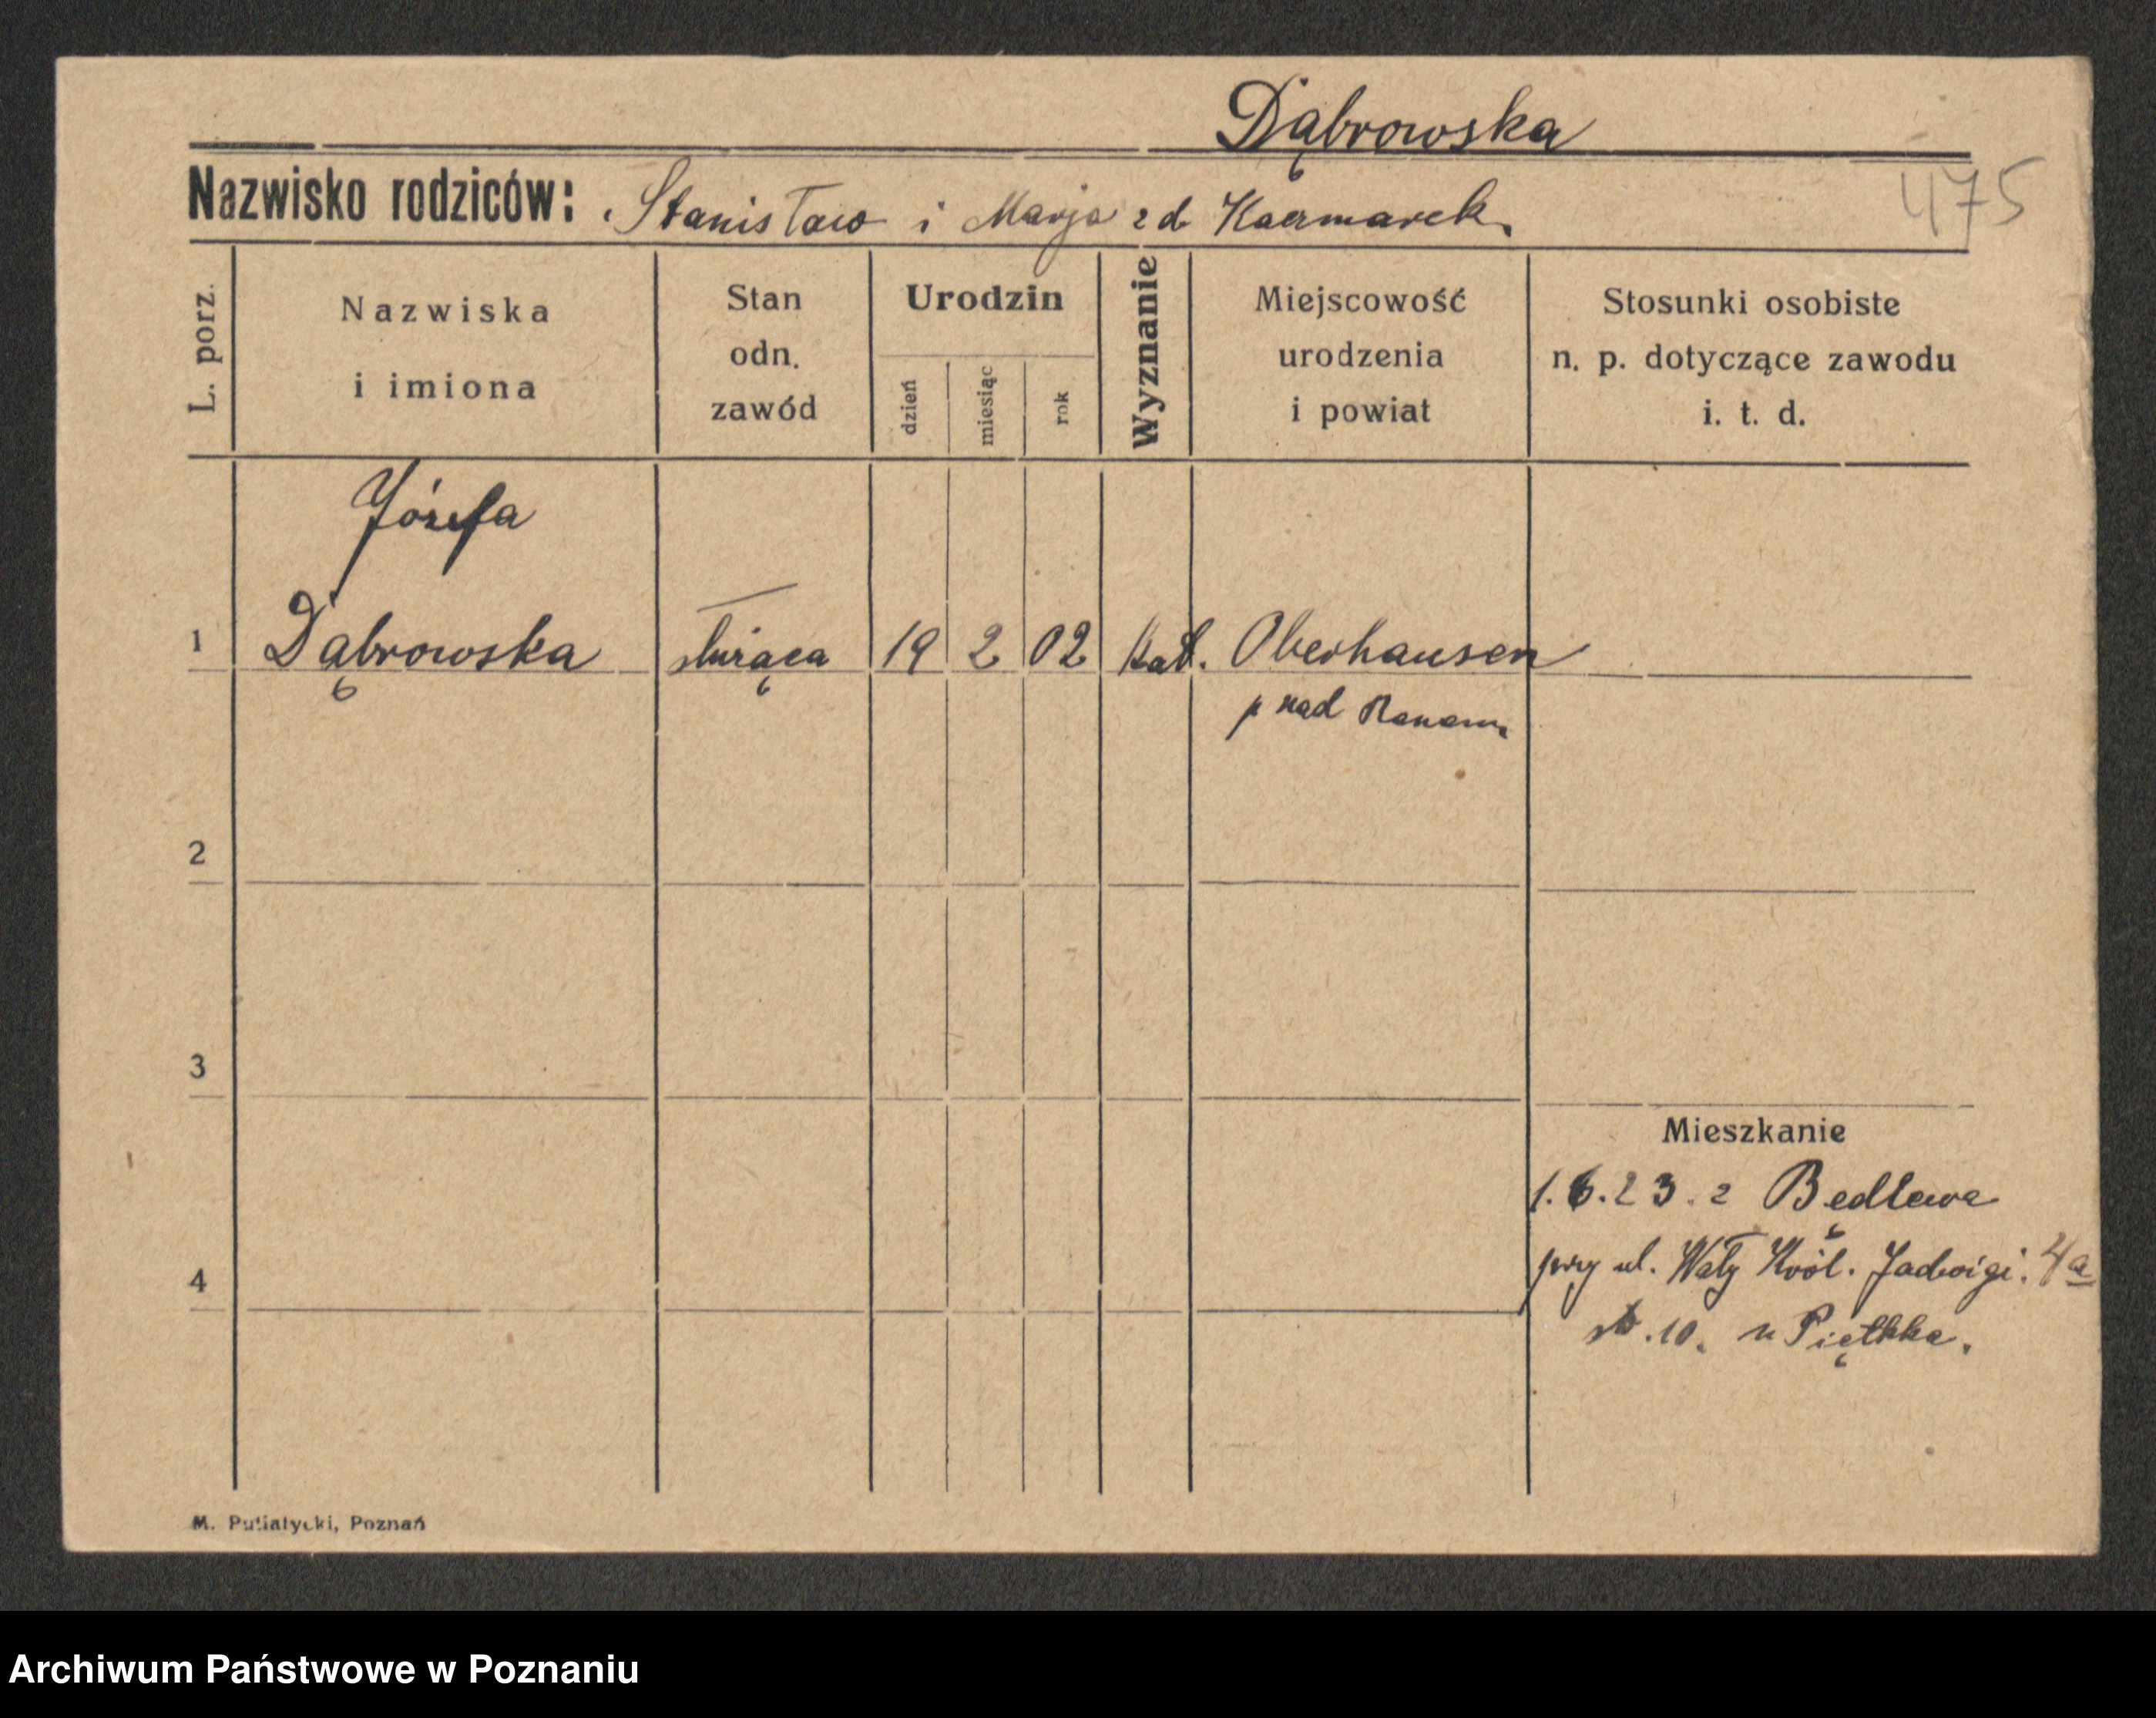 Dąbrowska
Nazwisko rodziców: Stanisław i Marja z d Kaczmarek.
475
L. porz.
Nazwiska
i imiona
Stan
odn.
zawód
Urodzin
dzień
miesiąc
rok
Wyznanie
Miejscowość
urodzenia
i powiat
Stosunki osobiste
n. p. dotyczące zawodu
i. t. d.
Józefa
1 Dąbrowska służąca 19 2 02 kat. Oberhausen
p nad Renem
2
3
Mieszkanie
1.6.23. z Będlewa
przy ul. Wały Król. Jadwigi. 4a
4
10. u Piętkka.
M. Putiatycki, Poznań
Archiwum Państwowe w Poznaniu